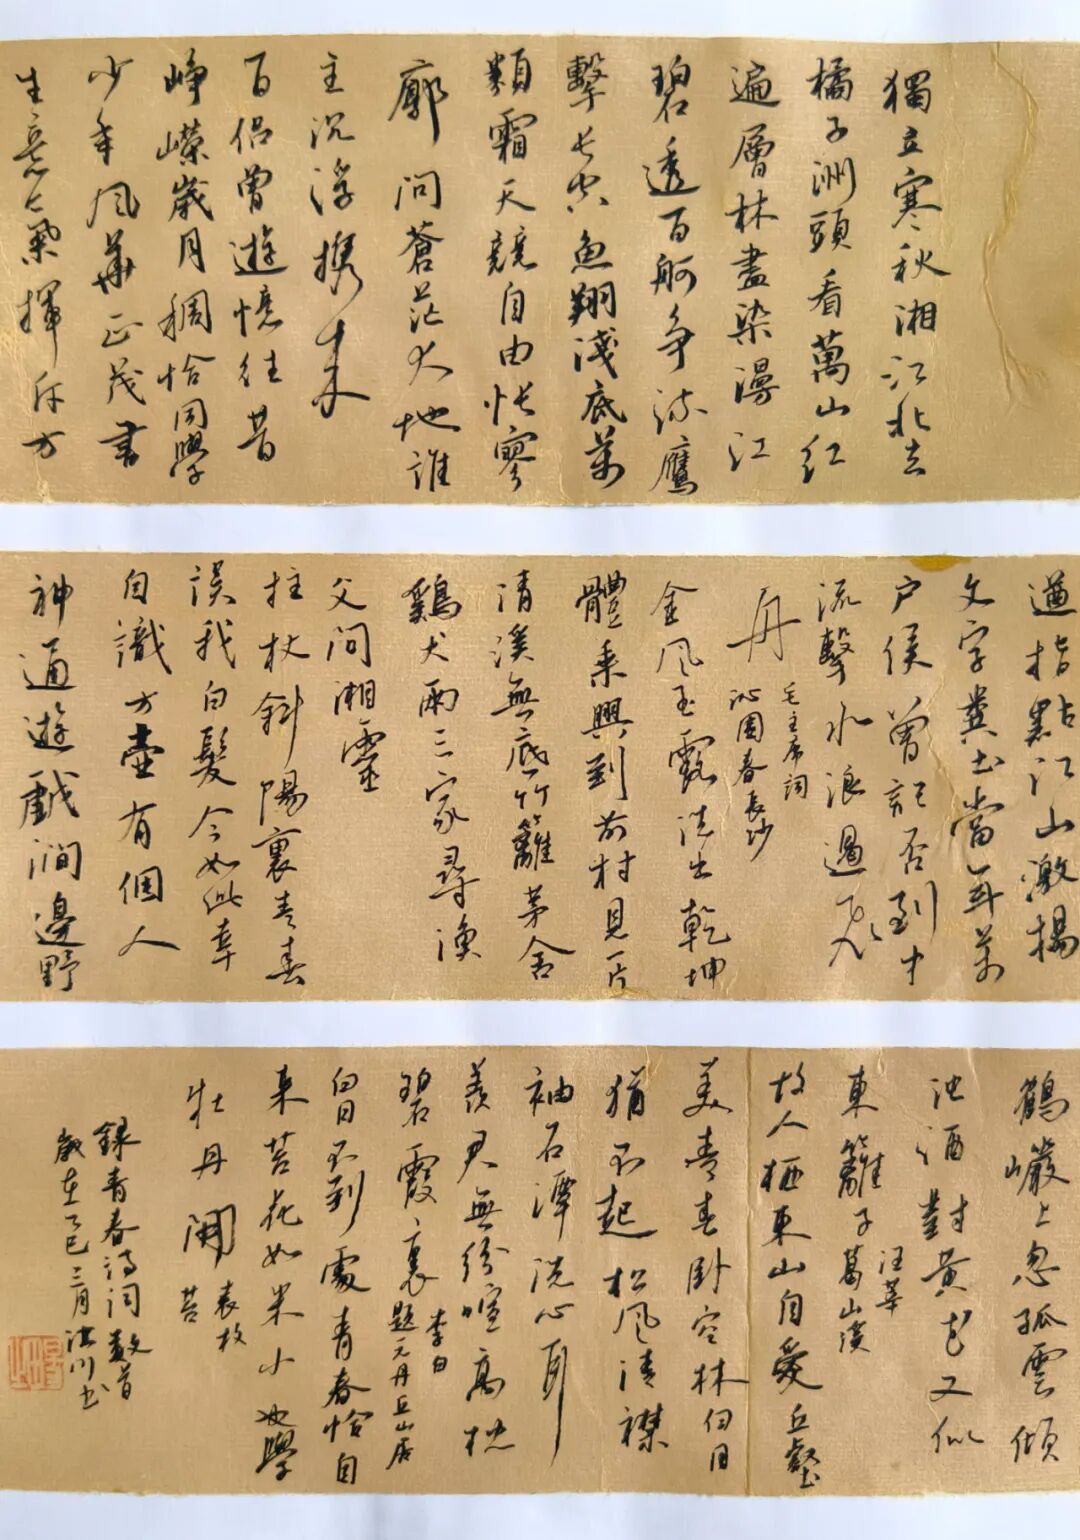 獨立寒秋湘江北去
橘子洲頭看萬山紅
遍層林盡染漫江
碧透百舸争流鷹
擊長空魚翔淺底萬
類霜天競自由悵寥
廓問蒼茫大地誰
主沉浮攜來
百侣曾遊憶往昔
崢嶸歲月稠恰同學
少年風華正茂書
生意氣揮斥方
遒指點江山激揚
文字糞土當年萬
户侯曾記否到中
流擊水浪遏飛
舟
毛主席詞
沁園春長沙
金風玉露洗出乾坤
體乘興到前村見一片
清溪無底竹籬茅舍
鷄犬兩三家尋漁
父問湘靈
拄杖斜陽裏青春
誤我白髮今如此幸
自識方壺有個人
神通遊戲澗邊野
鶴巖上忽孤雲傾
浊酒對黄花又似
東籬子
汪莘
驀山溪
故人栖東山自愛丘壑
美青春卧空林白日
猶不起松風清襟
袖石潭洗心耳
羨君無紛喧高枕
碧霞裏
李白
題元丹丘山居
白日不到處青春恰自
來苔花如米小也學
牡丹開
袁枚
苔
録青春詩詞数首
歲在乙巳三月 川书